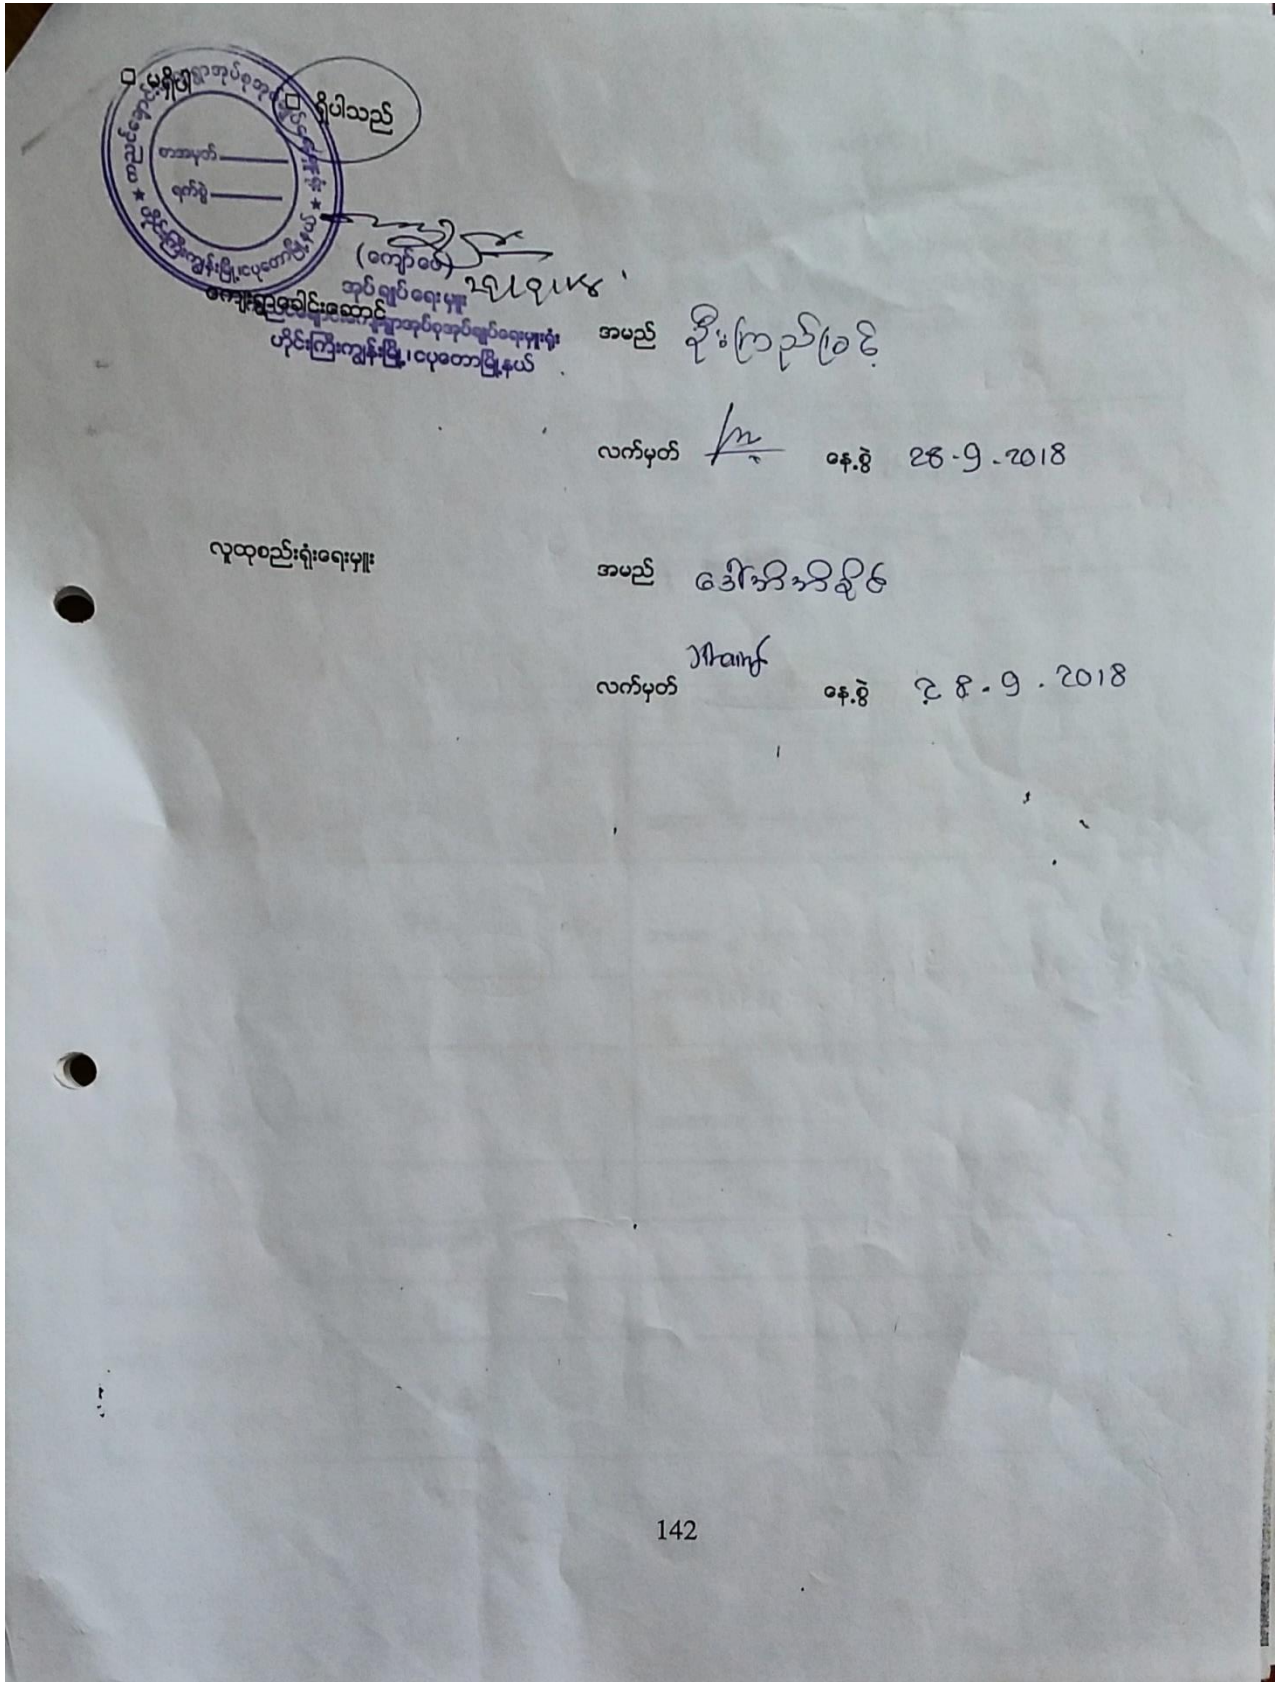 □ မရှိပါ □ ရှိပါသည်
စာအမှတ်
ရက်စွဲ
(ကျော်ဝေ)
အုပ်ချုပ်ရေးမှူး
ကျေးရွာခေါင်းဆောင်
ကျေးရွာအုပ်စုအုပ်ချုပ်ရေးမှူးရုံး
ဟိုင်းကြီးကျွန်းမြို့၊ ငပုတောမြို့နယ်
အမည် ဦးကြည်မြင့်
လက်မှတ် နေ့စွဲ 28-9-2018
လူထုစည်းရုံးရေးမှူး အမည် ဒေါ်အိအိခိုင်
လက်မှတ် နေ့စွဲ 28-9-2018
142